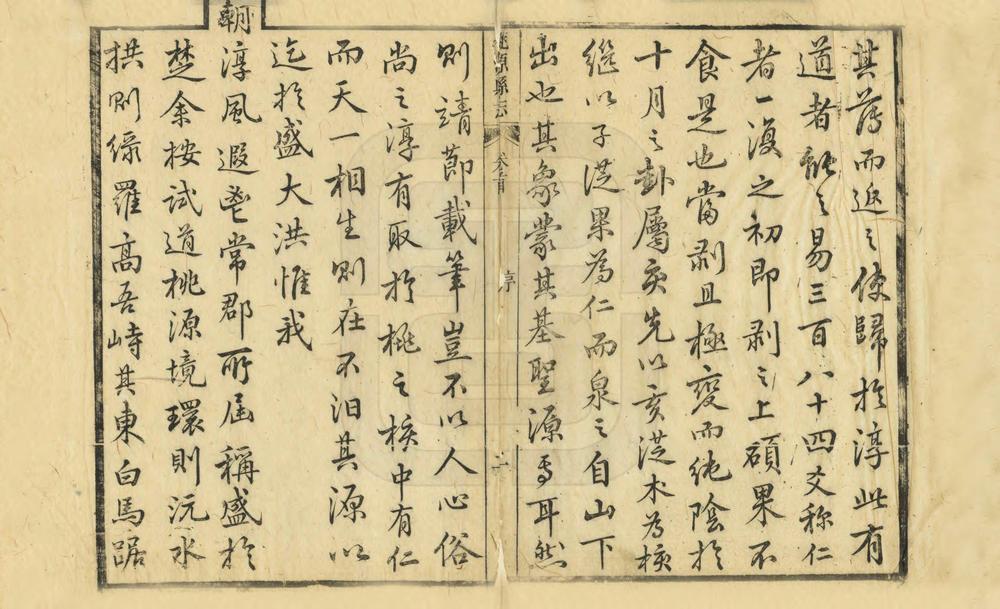 其薄而返之使歸於淳此有
道者能之易三百八十四爻称仁
者一復之初即剥之上碩果不
食是也當剥且極變而純陰於
十月之卦屬亥先以亥従木為核
継以子従果為仁而泉之自山下
出也其象蒙其基聖源焉耳然
桃源縣志 卷首 序 二
則靖節載筆豈不以人心俗
尚之淳有取於桃之核中有仁
而天一相生則在不汨其源以
迄於盛大洪惟我
朝淳風遐鬯常郡所届稱盛於
楚余按試道桃源境環則沅水
拱則緑羅高吾峙其東白馬踞